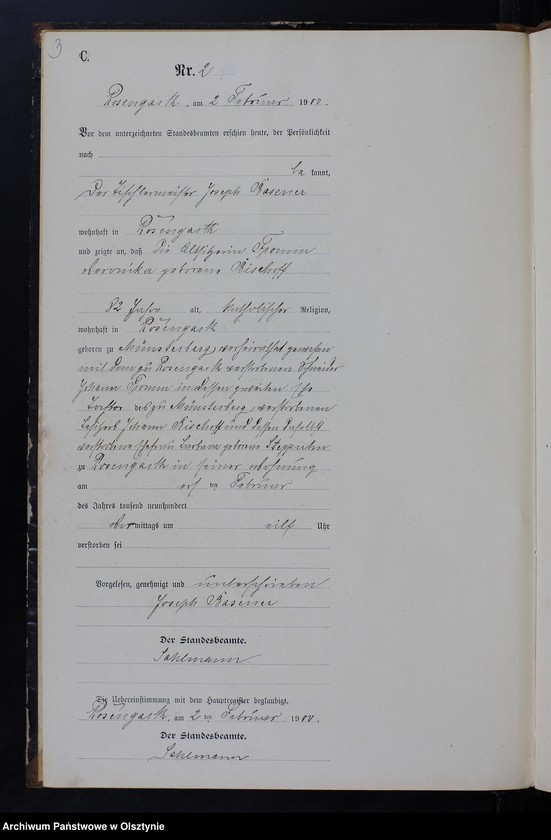 3
C.
Nr. 2
Rosengarth, am 2 Februar 1900.
Vor dem unterzeichneten Standesbeamten erschien heute, der Persönlichkeit
nach
be kannt,
Der Tischlermeister Joseph
wohnhaft in Rosengarth
und zeigte an, daß die Altsitzerin
Veronika geborene Bischoff
82 Jahre alt, katholischer Religion,
wohnhaft in Rosengarth
geboren zu Münsterberg, verheirathet gewesen
mit dem zu Rosengarth verstorbenen Schneider
Johann in dessen zweiten Ehe
Tochter des zu Münsterberg verstorbenen
Johann Bischoff und dessen daselbst
verstorbene Ehefrau Barbara geborene
zu Rosengarth in seiner Wohnung
am ten Februar
des Jahres tausend neunhundert
Vormittags um eilf Uhr
verstorben sei
Vorgelesen, genehmigt und unterschrieben
Joseph
Der Standesbeamte.
Sahlmann
Die Uebereinstimmung mit dem Hauptregister beglaubigt.
Rosengarth, am 2 ten Februar 1900.
Der Standesbeamte.
Sahlmann
Archiwum Państwowe w Olsztynie